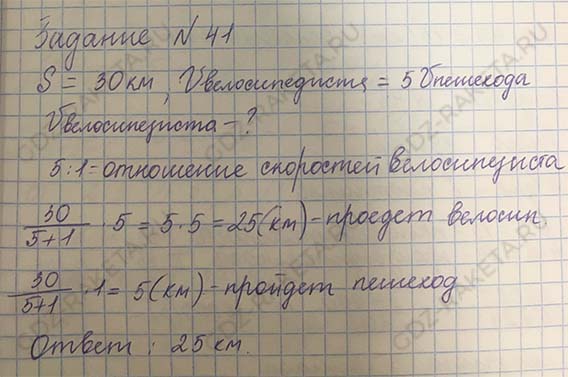 Задание N 41
S = 30 км, Vвелосипедиста = 5 Vпешехода
Vвелосипедиста - ?
5:1 = отношение скоростей велосипедиста
30/5+1 · 5 = 5 · 5 = 25 (км) - проедет велосип
30/5+1 · 1 = 5 (км) - пройдет пешеход
Ответ: 25 км.
GDZ-RAKETA.RU